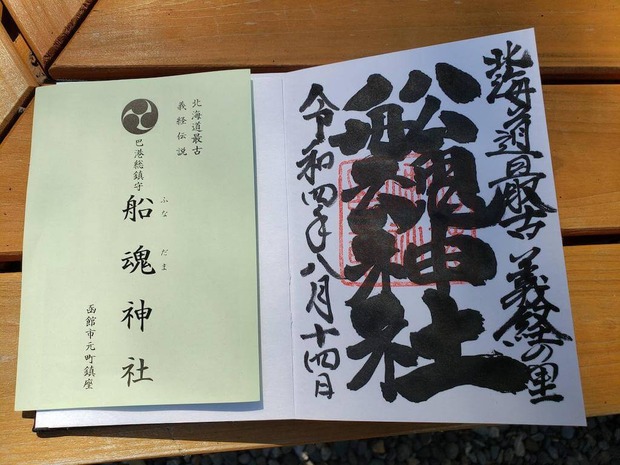 北海道最古 義経の里
船魂神社
令和四年八月十四日
北海道最古
義経伝説
巴港総鎮守
ふな だま
船魂神社
函館市元町鎮座